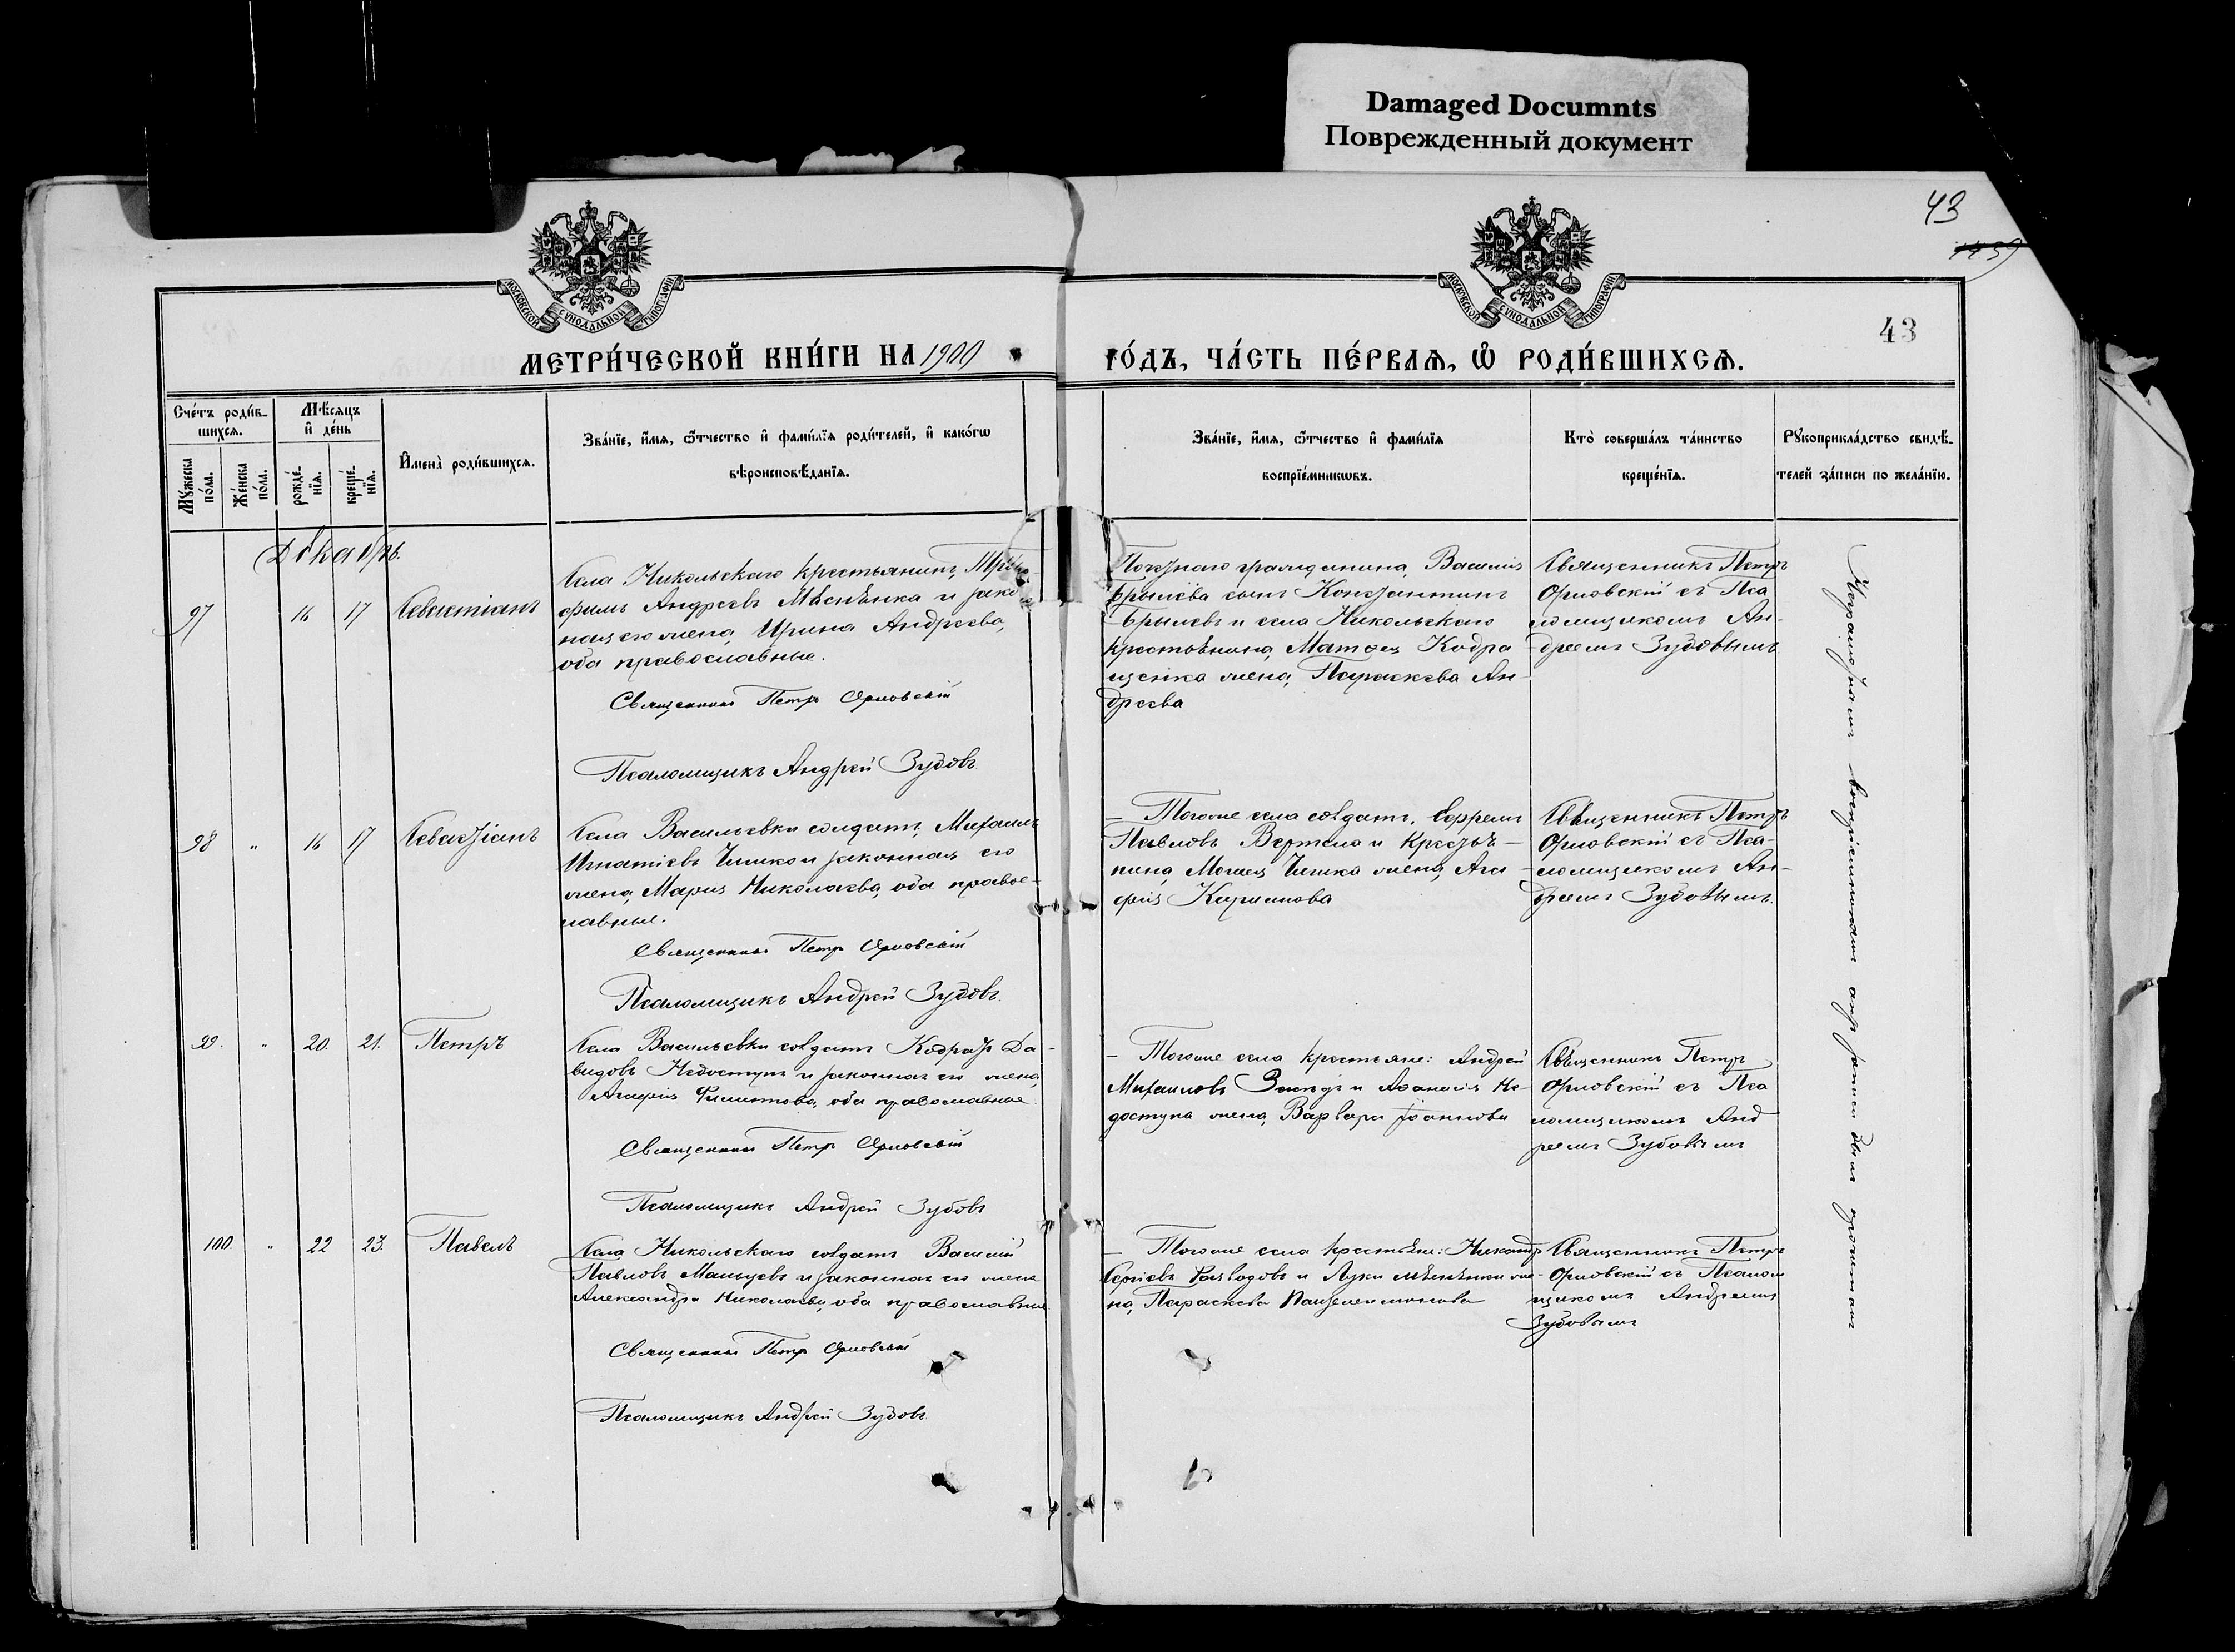 Damaged Documnts
Поврежденный документ
43
1459
43
МОСКОВСКОЙ СѴНОДАЛЬНОЙ ТИПОГРАФІИ
МОСКОВСКОЙ СѴНОДАЛЬНОЙ ТИПОГРАФІИ
МЕТРИ́ЧЕСКОЙ КНИ́ГИ НА 1900
ГО́ДЪ, ЧА́СТЬ ПЕ́РВАѦ, Ѡ҆ РОДИ́ВШИХСѦ.
Сче́тъ роди́в-
шихсѧ.
Мѣ́сѧцъ
и҆ де́нь
Мꙋ́жеска по́ла.
Же́нска по́ла.
рожде́нїѧ.
креще́нїѧ.
И҆мена̀ роди́вшихсѧ.
Зва́нїе, и҆́мѧ, ѻ҆́тчество и҆ фами́лїѧ роди́телей, и҆ како́гѡ
вѣроисповѣ́данїѧ.
Зва́нїе, и҆́мѧ, ѻ҆́тчество и҆ фами́лїѧ
воспрїе́мникѡвъ.
Кто̀ соверша́лъ та́инство
креще́нїѧ.
Рꙋкоприкла́дство свидѣ́-
телей за́писи по жела́нїю.
Декабрь.
97 16 17 Севастіанъ
Села Никольскаго крестьянинъ,
фимъ Андреевъ и зако
ная его жена, Ирина Андреева,
оба православные.
Священникъ Петръ Орловскій
Псаломщикъ Андрей Зубовъ.
Почетнаго гражданина, Василія
Брылёва сынъ Константинъ
Брылевъ и села Никольскаго
крестьянина, Матѳея Кодра
щенка жена, Параскева Ан-
дреева
Священникъ Петръ
Орловскій съ Пса
ломщикомъ Ан-
дреемъ Зубовымъ
98 " 16 17 Севастіанъ
Села Васильевки солдатъ, Михаилъ
Игнатіевъ и законная его
жена, Марія Николаева, оба правос-
лавные.
Священникъ Петръ Орловскій
Псаломщикъ Андрей Зубовъ.
– Того же села солдатъ, Ефремъ
Павловъ Вертела и крестья-
нина, жена, Ага-
фія Кириллова
Священникъ Петръ
Орловскій съ Пса-
ломщикомъ Ан-
дреемъ Зубовымъ.
99. " 20. 21. Петръ
Села Васильевки солдатъ Кодратъ Да-
видовъ Недоступъ и законная его жена,
Агафія Филиппова, оба православные.
Священникъ Петръ Орловскій
Псаломщикъ Андрей Зубовъ
– Того же села крестьяне: Андрей
Михаиловъ и Аѳанасія Не-
доступа жена, Варвара Іоаннова
Священникъ Петръ
Орловскій съ Пса
ломщикомъ Анд
реемъ Зубовымъ
100. " 22 23. Павелъ
Села Никольскаго солдатъ Василій
Павловъ Мальцевъ и законная его жена
Александра Николаева, оба православные.
Священникъ Петръ Орловскій
Псаломщикъ Андрей Зубовъ.
– Того же села крестьяне: Никандр
Сергіевъ и Луки же-
на, Параскева Пантелеимонова
Священникъ Петръ
Орловскій съ Псалом
щикомъ Андреемъ
Зубовымъ
воспріемникамъ актъ записи былъ прочитанъ